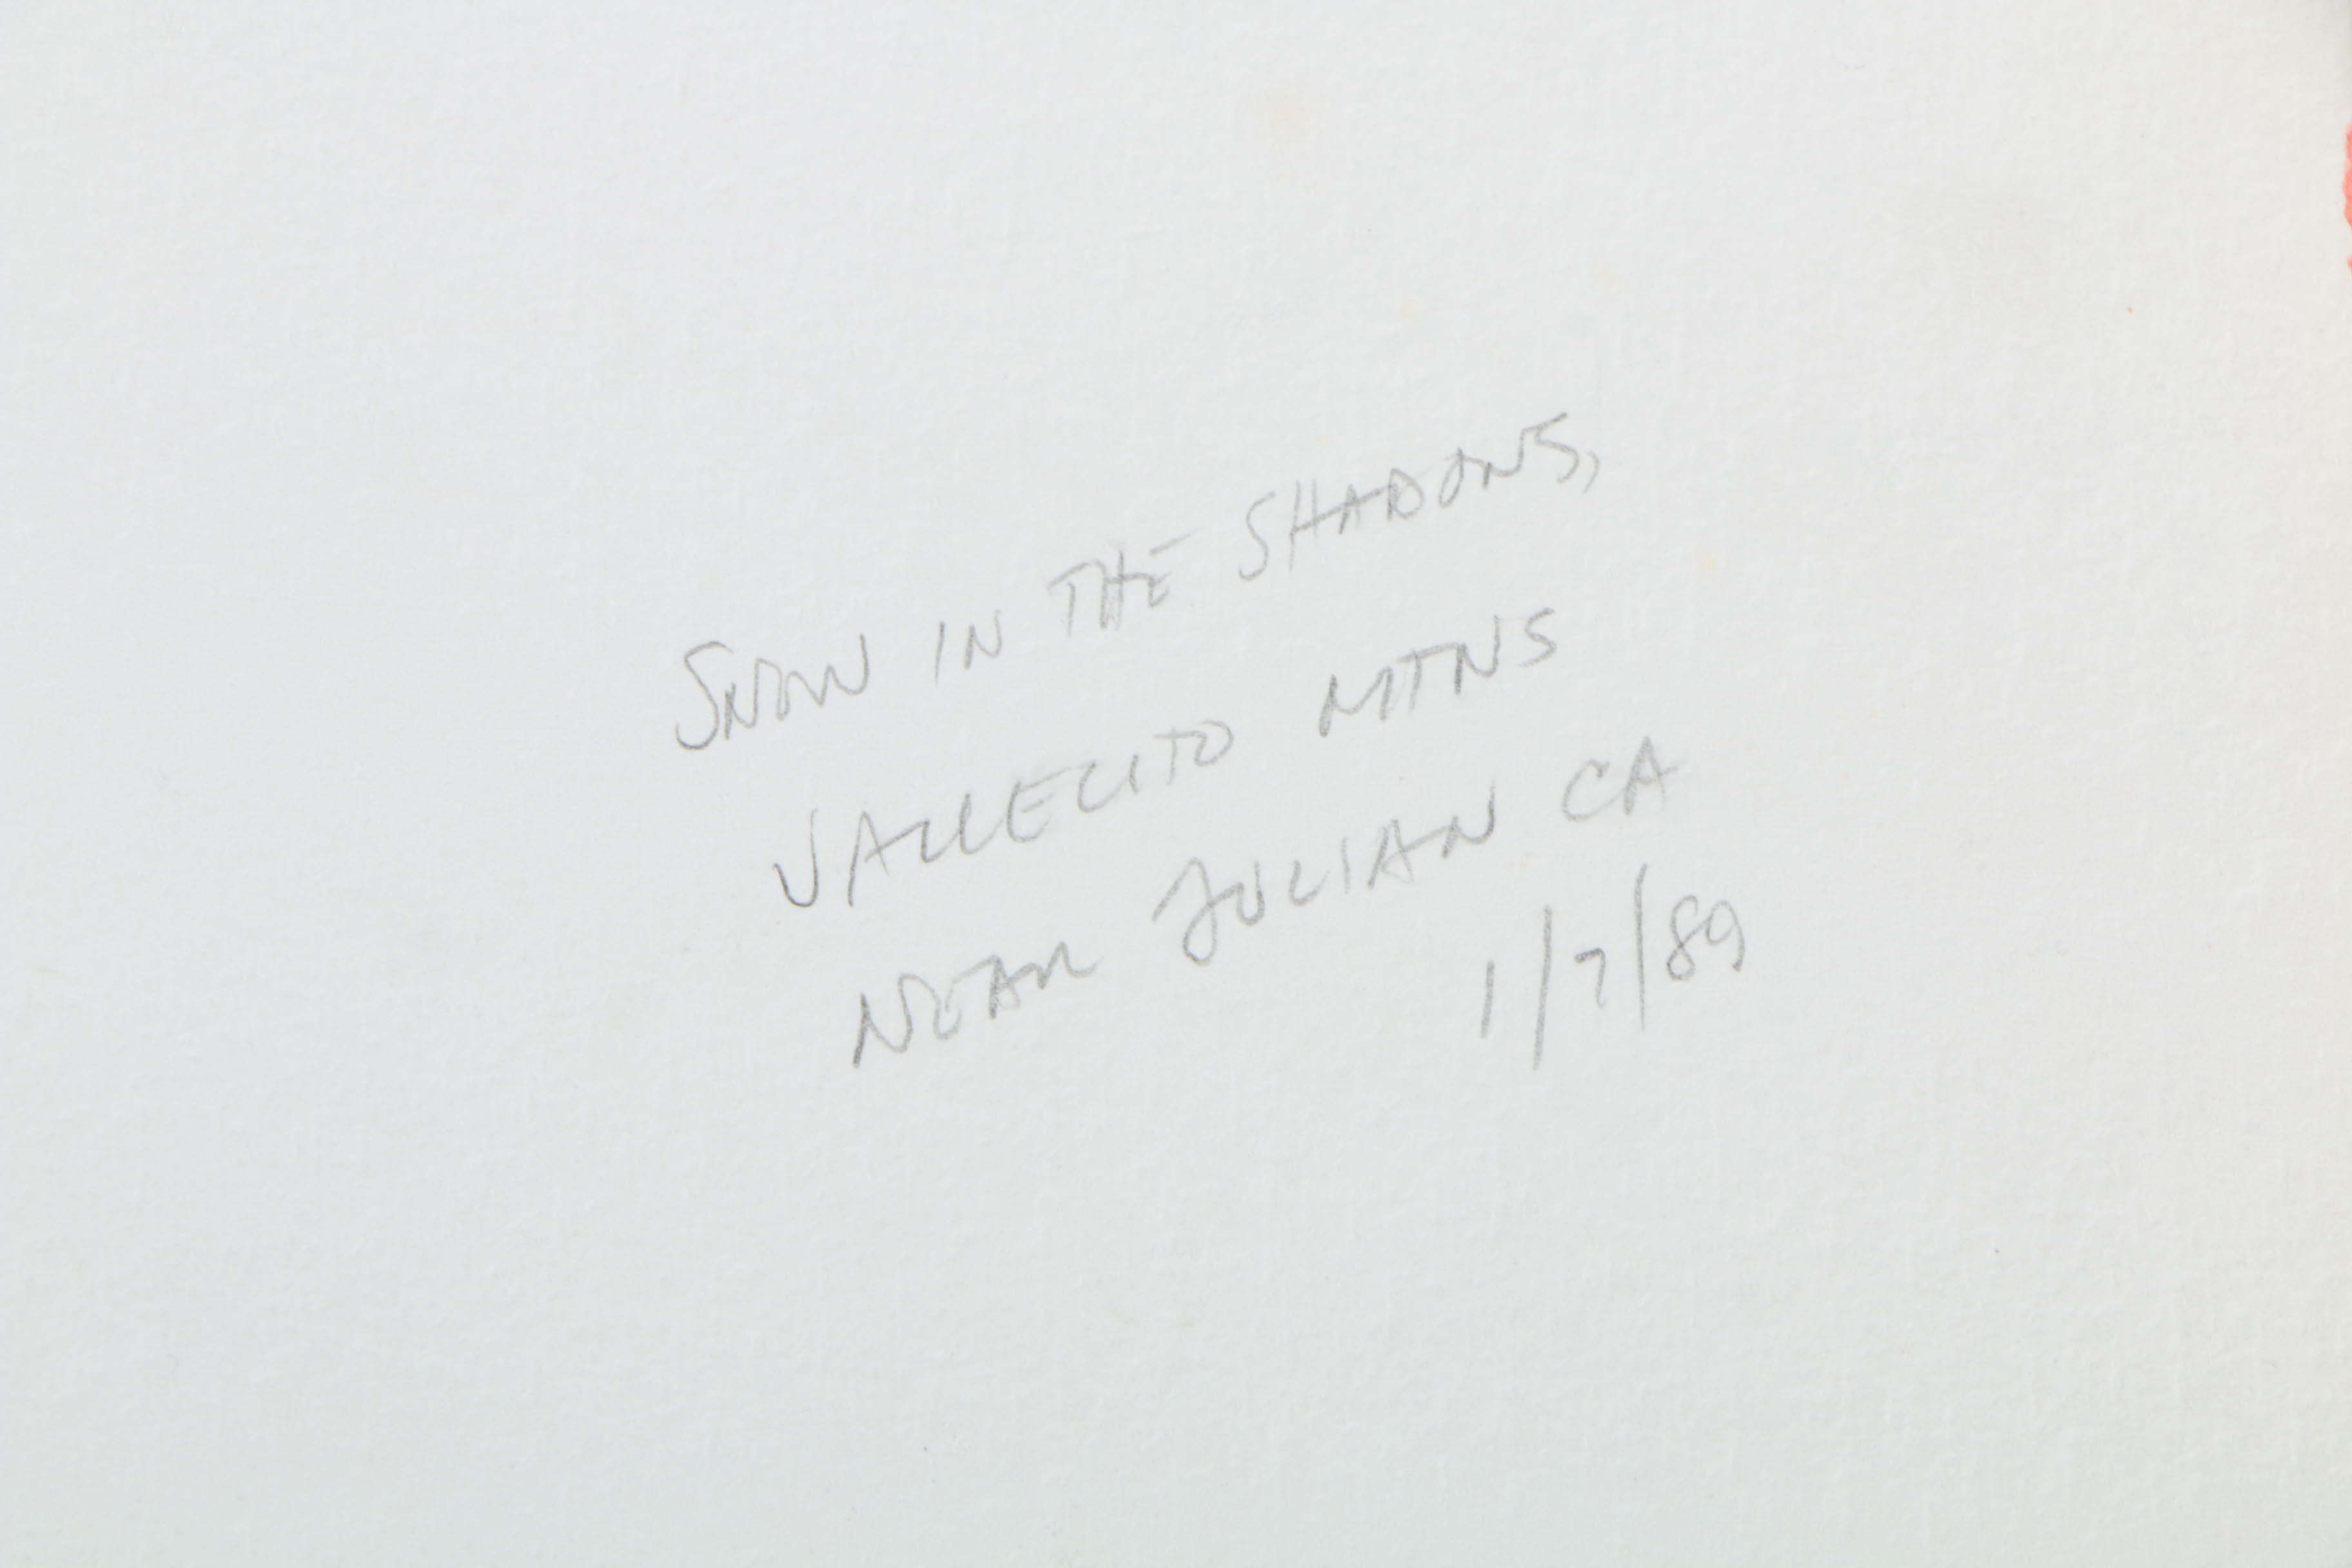 SNOW IN THE SHADOWS,
VALLECITO MTNS
NEAR JULIAN CA
1/7/89